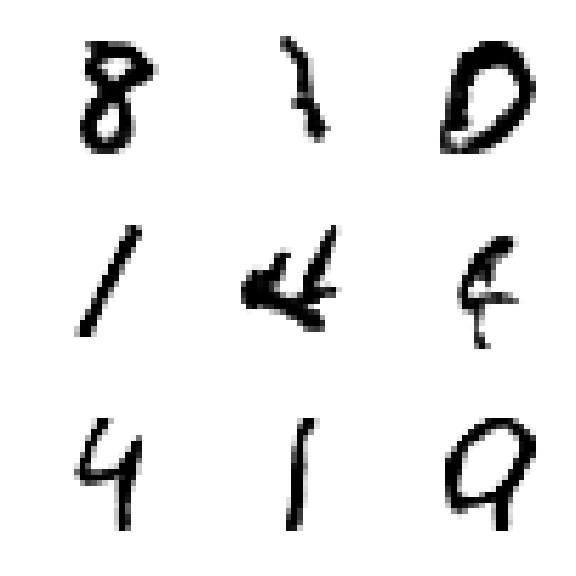 8 1 0
1 4
4 1 9